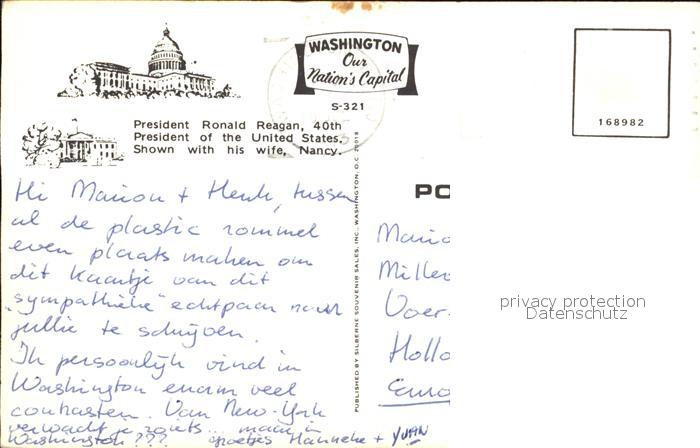 WASHINGTON
Our
Nation's Capital
S-321
168982
President Ronald Reagan, 40th
President of the United States.
Shown with his wife, Nancy.
PUBLISHED BY SILBERNE SOUVENIR SALES, INC., WASHINGTON, D.C. 20018
PO
Hi Marion + Henk, tussen
al de plastic rommel
even plaats maken om
dit kaartje van dit
"sympathieke" echtpaar naar
jullie te schrijven.
Ik persoonlijk vind in
Washington enorm veel
contrasten. Van New-York
verwacht je zoiets... maar in
Washington??? groetjes Hanneke +
Mario
Mille
Voer
Hollo
Euro
privacy protection
Datenschutz